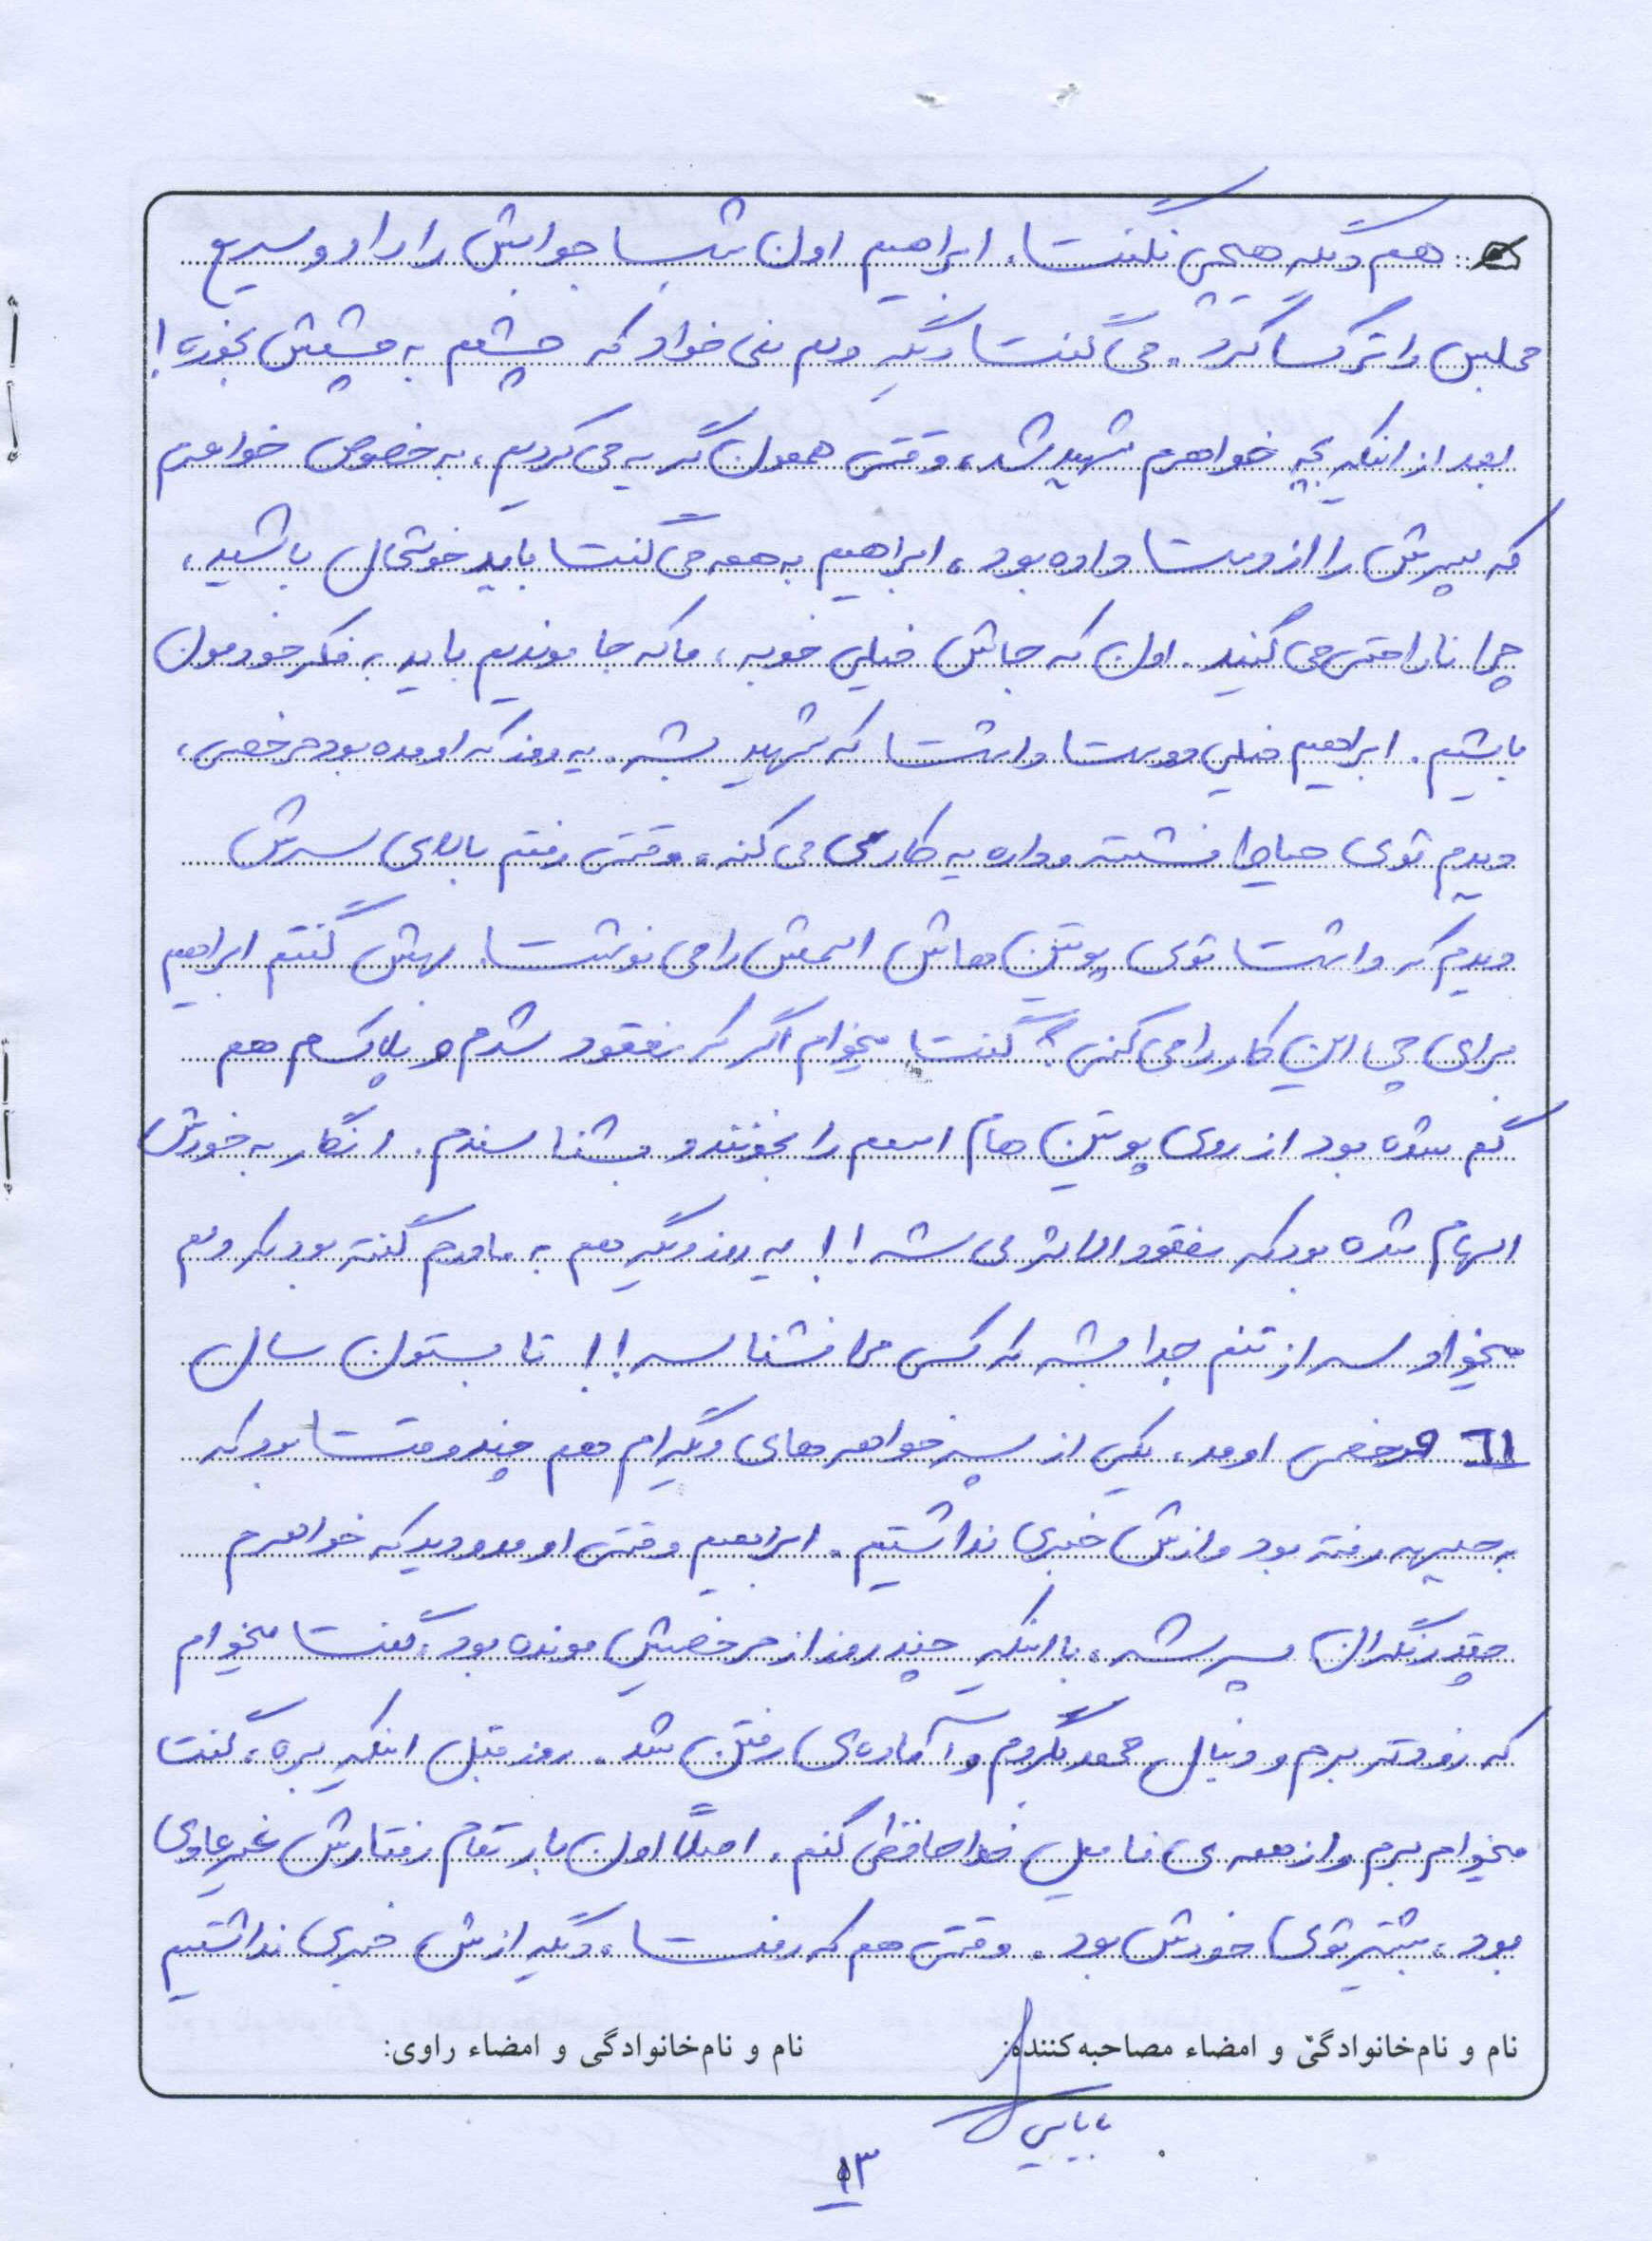 هم دیگه هیچی نگفت. ابراهیم اون شب جوابش را داد و سریع
مجلس را ترک کرد. می گفت دیگه دلم نمی خواد که چشمم به چشمش بخوره!
بعد از اینکه بچه خواهرم شهید شد، وقتی همه‌مون گریه می کردیم، به خصوص خواهرم
که پسرش را از دست داده بود، ابراهیم به همه می گفت باید خوشحال باشید،
چرا ناراحتی می کنید. اون که جاش خیلی خوبه، ما که جا موندیم باید به فکر خودمون
باشیم. ابراهیم خیلی دوست داشت که شهید بشه. یه روز که اومده بود مرخصی،
دیدم توی حیاط نشسته و داره یه کاری می کنه، وقتی رفتم بالای سرش
دیدم که داشت توی پوتین هاش اسمش را می نوشت. بهش گفتم ابراهیم
برای چی این کار را می کنی؟ گفت میخوام اگر که مفقود شدم و پلاکم هم
گم شده بود از روی پوتین هام اسمم را بخونند و بشناسندم. انگار به خودش
الهام شده بود که مفقودالاثر می شه!! یه روز دیگه هم به مادرم گفته بود که دلم
میخواد سر از تنم جدا بشه که کسی من را نشناسه!! تابستون سال
61 مرخصی اومد، یکی از پسر خواهرهای دیگه‌ام هم چند وقت بود که
به جبهه رفته بود و ازش خبری نداشتیم. ابراهیم وقتی اومد و دید که خواهرم
چقدر نگران پسرشه، با اینکه چند روز از مرخصیش مونده بود، گفت میخوام
که زودتر برم و دنبال محمد بگردم و آماده‌ی رفتن شد. روز قبل اینکه بره، گفت
میخوام برم و از همه ی فامیل خداحافظی کنم. اصلاً اون بار تمام رفتارش غیرعادی
بود، بیشتر توی خودش بود. وقتی هم که رفت، دیگه ازش خبری نداشتیم
نام و نام‌خانوادگی و امضاء مصاحبه‌کننده: نام و نام‌خانوادگی و امضاء راوی:
بابایی
۱۳